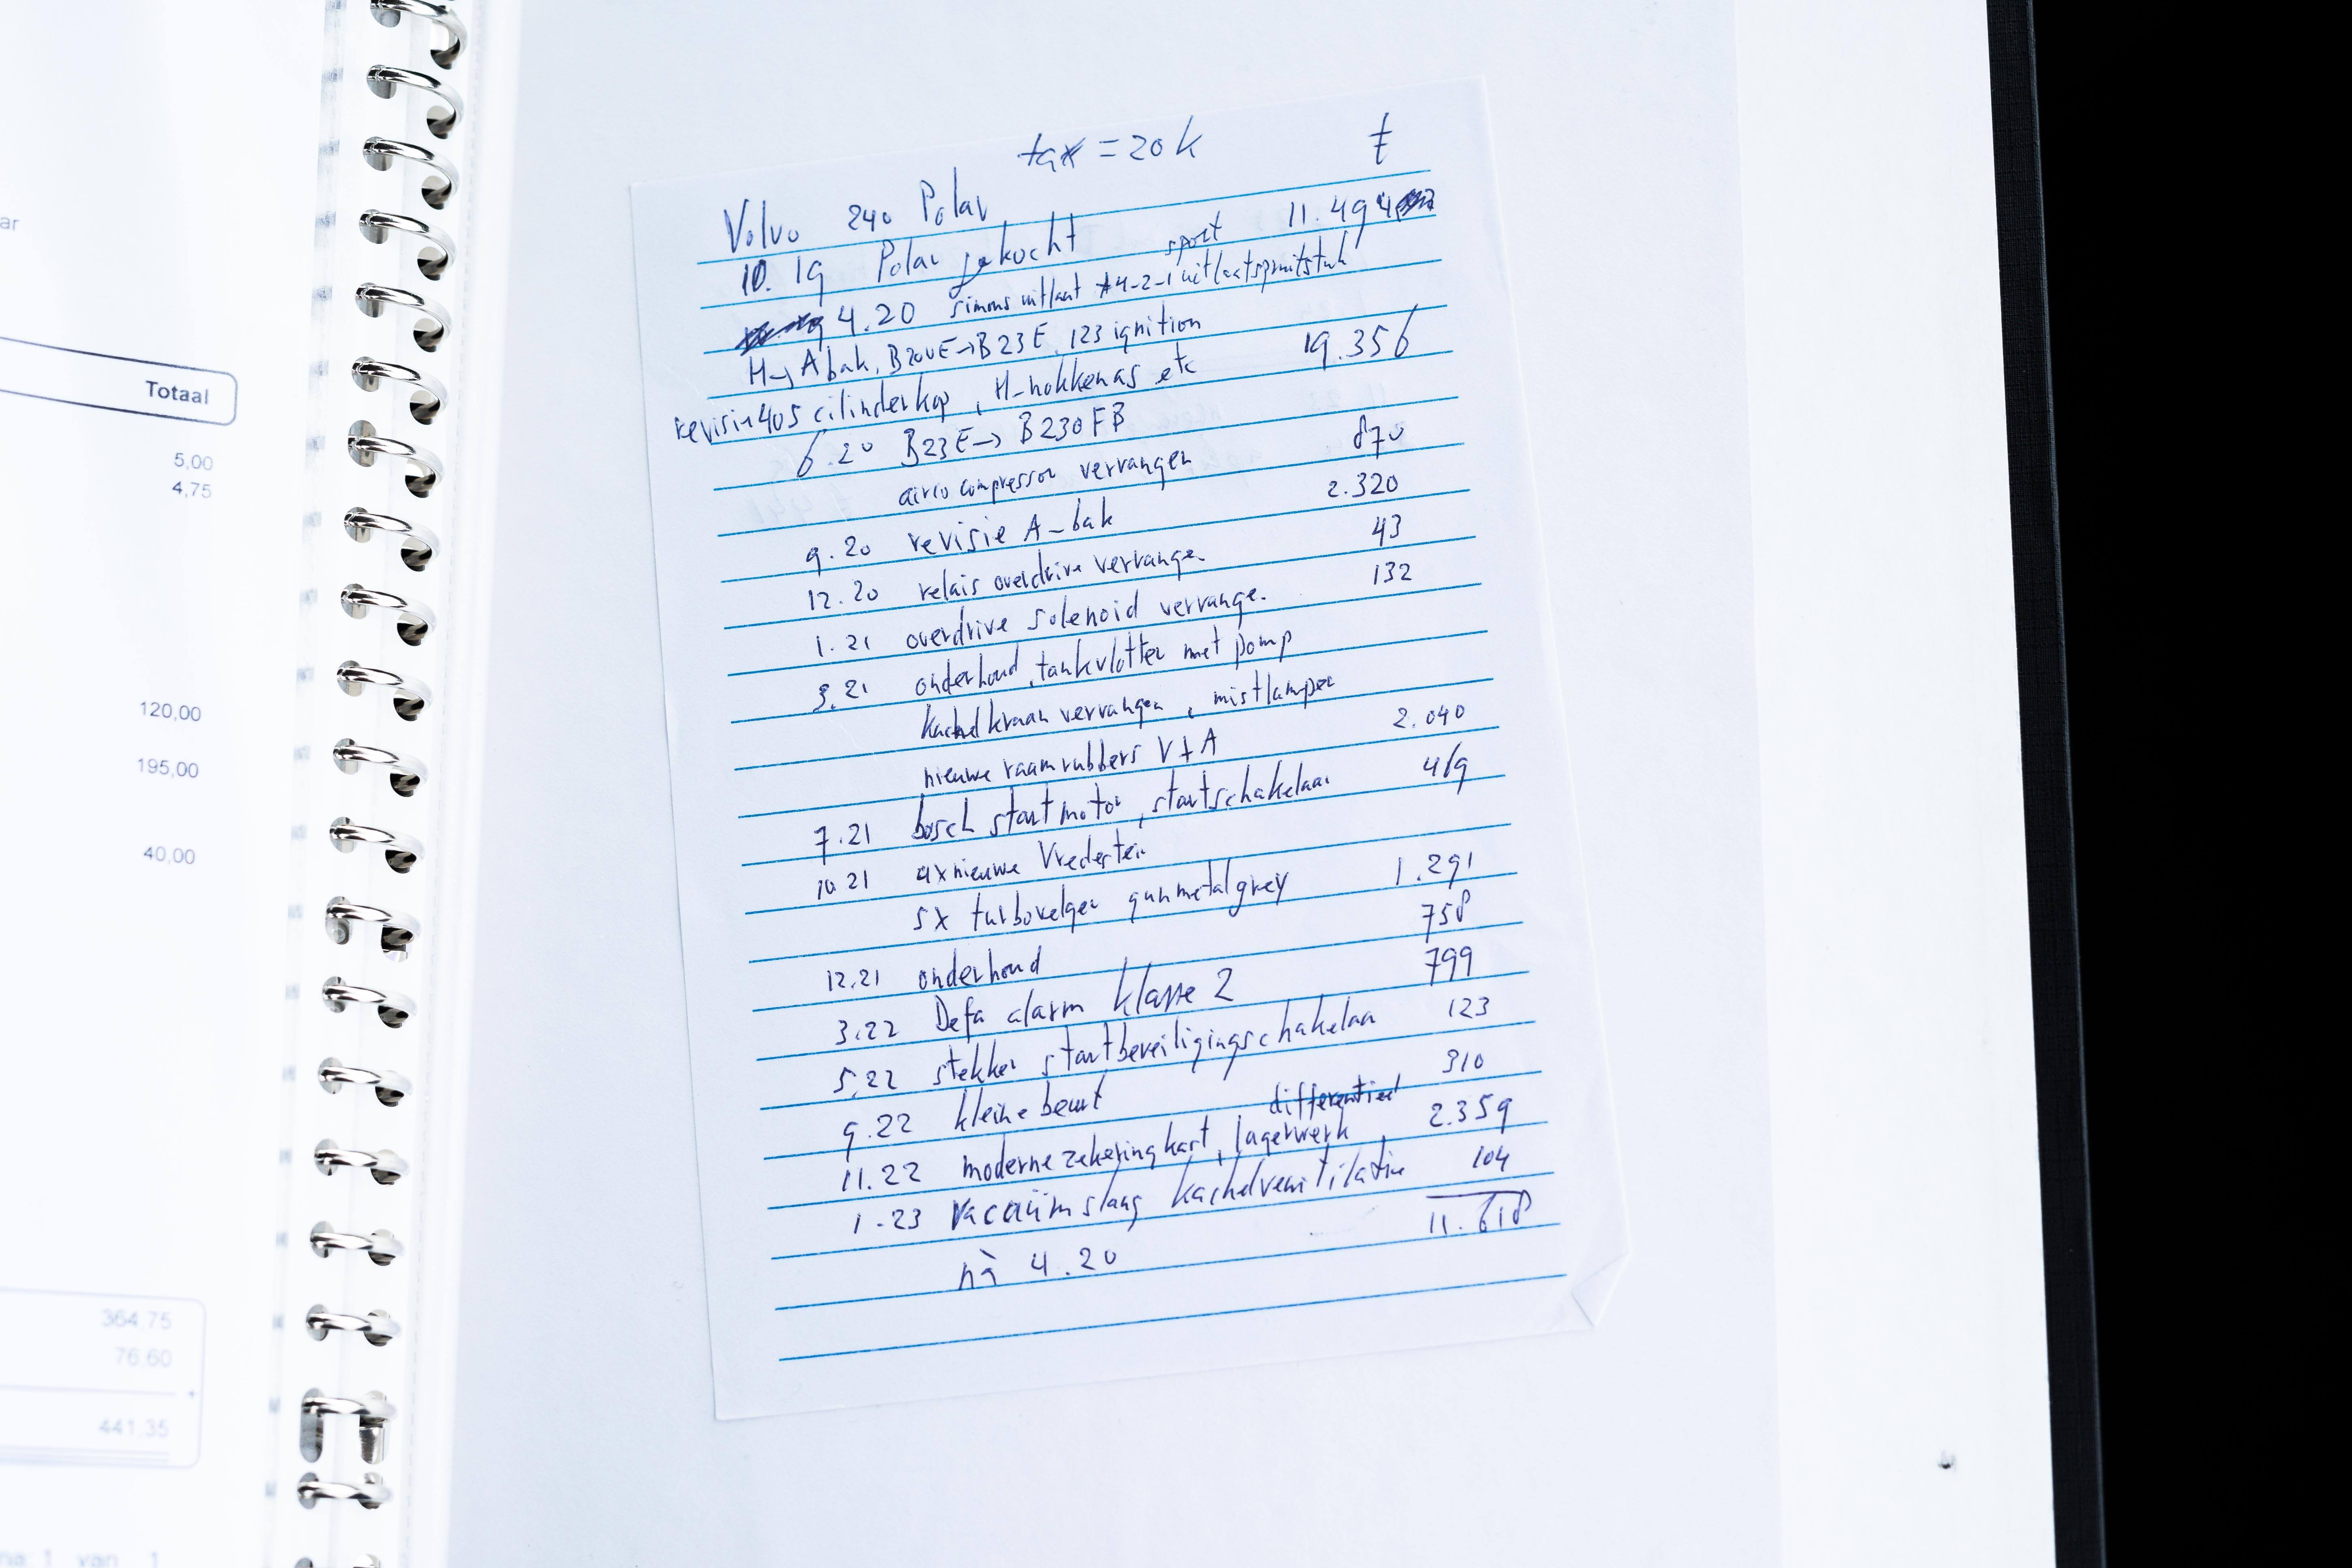 ar
Totaal
5,00
4,75
120,00
195,00
40,00
364,75
76,60
441,35
1 van 1
tax = 20k €
Volvo 240 Polar
10.19 Polar gekocht 11.494
sport
4.20 simons uitlaat 4-2-1 uitlaatspruitstuk
H→A bak, B200E→B23E, 123 ignition
revisie 405 cilinderkop, H-nokkenas etc 19.356
6.20 B23E→ B230FB
airco compressor vervangen 870
9.20 revisie A-bak 2.320
12.20 relais overdrive vervange. 43
1.21 overdrive solenoid vervange. 132
3.21 onderhoud, tankvlotter met pomp
kachelkraan vervangen, mistlampen
nieuwe raamrubbers V+A 2.040
7.21 bosch startmotor, startschakelaar 469
10.21 4x nieuwe Vredestein
5x turbovelgen gunmetalgrey 1.291
12.21 onderhoud 758
3.22 Defa alarm klasse 2 799
5.22 stekker startbeveiligingschakelaa 123
9.22 kleine beurt 310
differentieel
11.22 moderne zekeringkast, lagerwerk 2.359
1-23 vacuümslang kachelventilatie 104
nà 4.20 11.618